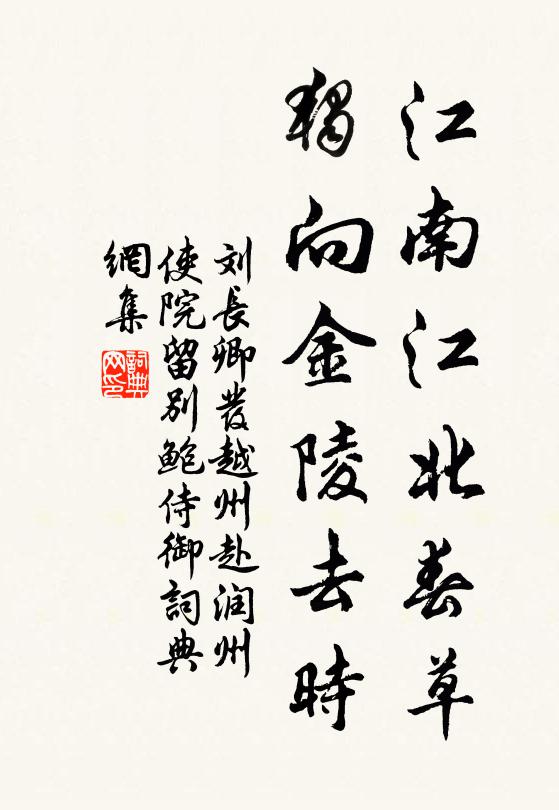 江南江北春草
獨向金陵去時
刘長卿發越州赴润州
使院留別鲍侍御詞典
網集
詞典
网印